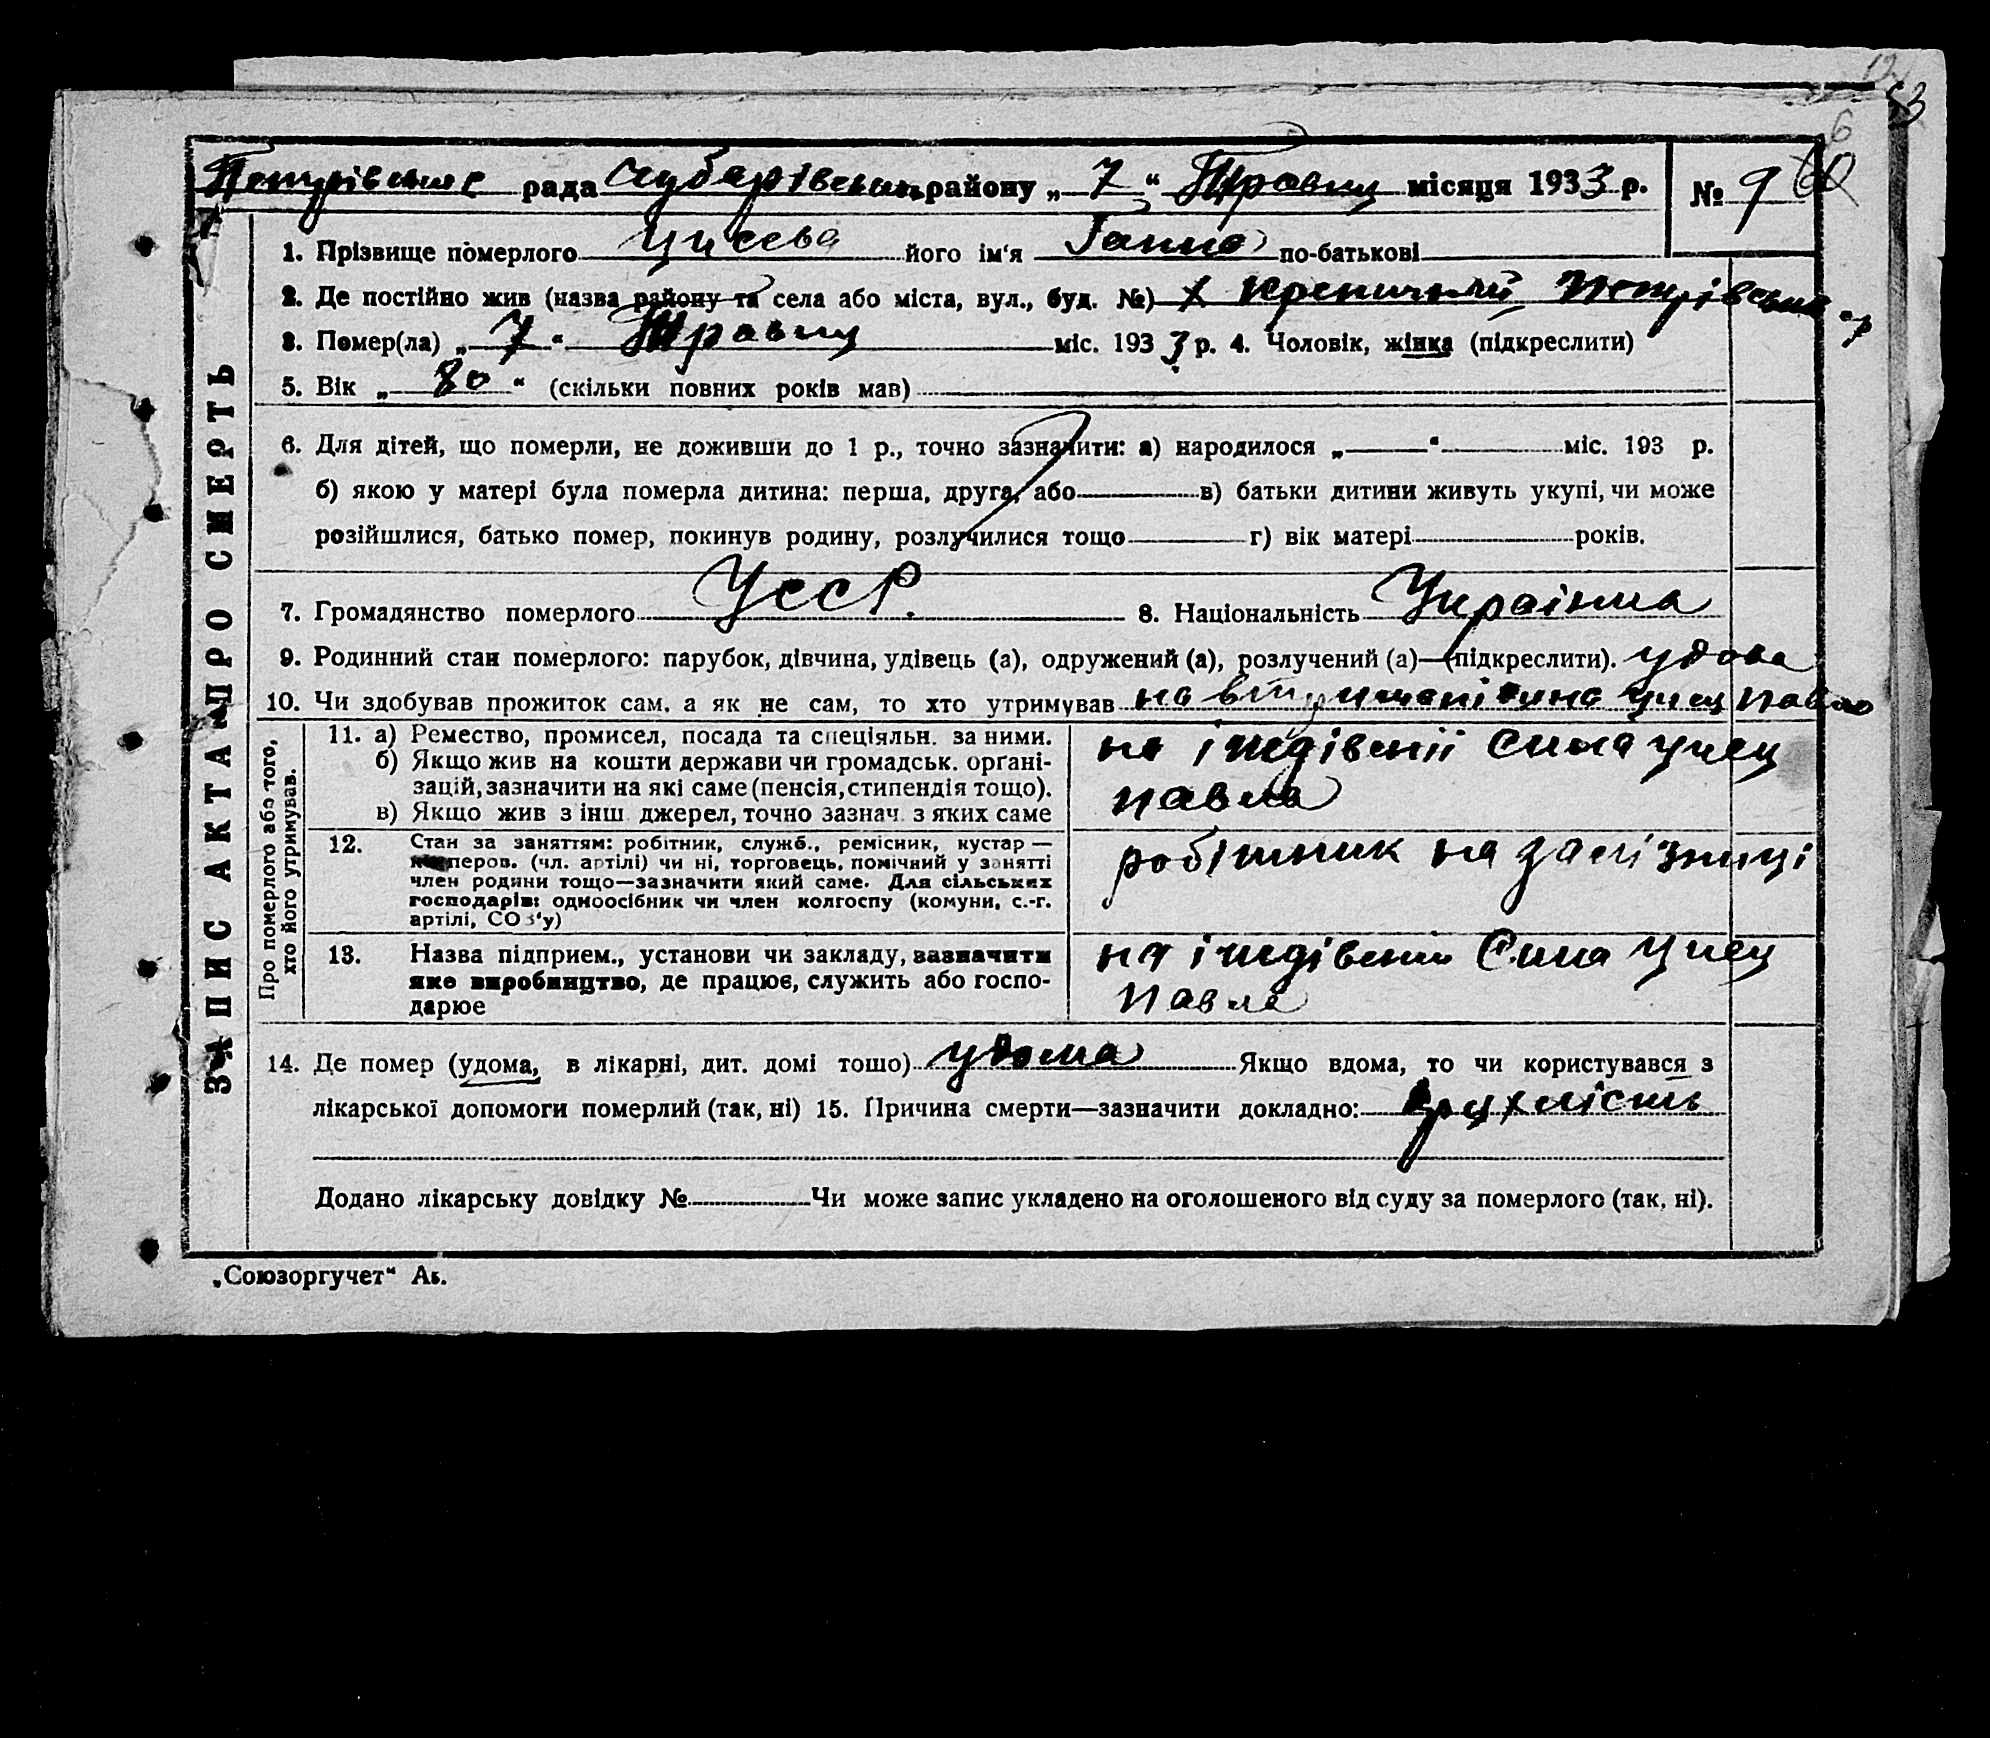 53
6
Петрівська рада Чубарівськ району „ 7 “ Травня місяця 1933 р. № 9
1. Прізвище померлого його ім'я Ганна по-батькові
2. Де постійно жив (назва району та села або міста, вул., буд. №) х Криничний Петрівська с/р
3. Помер(ла) „ 7 “ Травня міс. 1933 р. 4. Чоловік, жінка (підкреслити)
5. Вік „ 80 “ (скільки повних років мав)
6. Для дітей, що померли, не доживши до 1 р., точно зазначити: а) народилося „ “ міс. 193 р.
б) якою у матері була померла дитина: перша, друга, або в) батьки дитини живуть укупі, чи може
розійшлися, батько помер, покинув родину, розлучилися тощо г) вік матері років.
7. Громадянство померлого УССР. 8. Національність Українка
9. Родинний стан померлого: парубок, дівчина, удівець (а), одружений (а), розлучений (а)—(підкреслити). удова
10. Чи здобував прожиток сам, а як не сам, то хто утримував на сина Павла
ЗАПИС АКТА ПРО СМЕРТЬ
Про померлого або того,
хто його утримував.
11. а) Ремество, промисел, посада та спеціяльн. за ними.
б) Якщо жив на кошти держави чи громадськ. органі-
зацій, зазначити на які саме (пенсія, стипендія тощо).
в) Якщо жив з інш. джерел, точно зазнач. з яких саме
на іждівенії Сина
Павла
12. Стан за заняттям: робітник, служб., ремісник, кустар —
коперов. (чл. артілі) чи ні, торговець, помічний у занятті
член родини тощо—зазначити який саме. Для сільських
господарів: одноосібник чи член колгоспу (комуни, с.-г.
артілі, СОЗ'у)
робітник на залізниці
13. Назва підприєм., установи чи закладу, зазначити
яке виробництво, де працює, служить або госпо-
дарює
на іждівенії Сина
Павла
14. Де помер (удома, в лікарні, дит. домі тощо) удома Якщо вдома, то чи користувався з
лікарської допомоги померлий (так, ні) 15. Причина смерти—зазначити докладно: Друхлість
Додано лікарську довідку № Чи може запис укладено на оголошеного від суду за померлого (так, ні).
„Союзоргучет“ Ак.